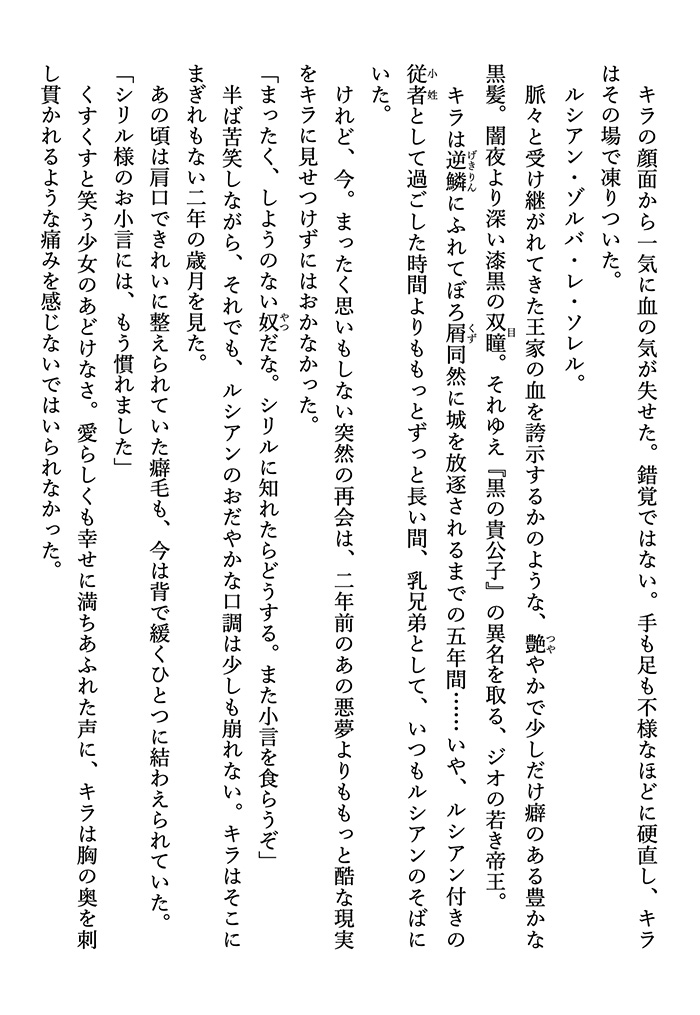 キラの顔面から一気に血の気が失せた。錯覚ではない。手も足も不様なほどに硬直し、キラ
はその場で凍りついた。
　ルシアン・ゾルバ・レ・ソレル。
　脈々と受け継がれてきた王家の血を誇示するかのような、艶やかで少しだけ癖のある豊かな
黒髪。闇夜より深い漆黒の双瞳。それゆえ『黒の貴公子』の異名を取る、ジオの若き帝王。
　キラは逆鱗にふれてぼろ屑同然に城を放逐されるまでの五年間……いや、ルシアン付きの
従者として過ごした時間よりももっとずっと長い間、乳兄弟として、いつもルシアンのそばに
いた。
　けれど、今。まったく思いもしない突然の再会は、二年前のあの悪夢よりももっと酷な現実
をキラに見せつけずにはおかなかった。
「まったく、しようのない奴だな。シリルに知れたらどうする。また小言を食らうぞ」
　半ば苦笑しながら、それでも、ルシアンのおだやかな口調は少しも崩れない。キラはそこに
まぎれもない二年の歳月を見た。
　あの頃は肩口できれいに整えられていた癖毛も、今は背で緩くひとつに結わえられていた。
「シリル様のお小言には、もう慣れました」
　くすくすと笑う少女のあどけなさ。愛らしくも幸せに満ちあふれた声に、キラは胸の奥を刺
し貫かれるような痛みを感じないではいられなかった。